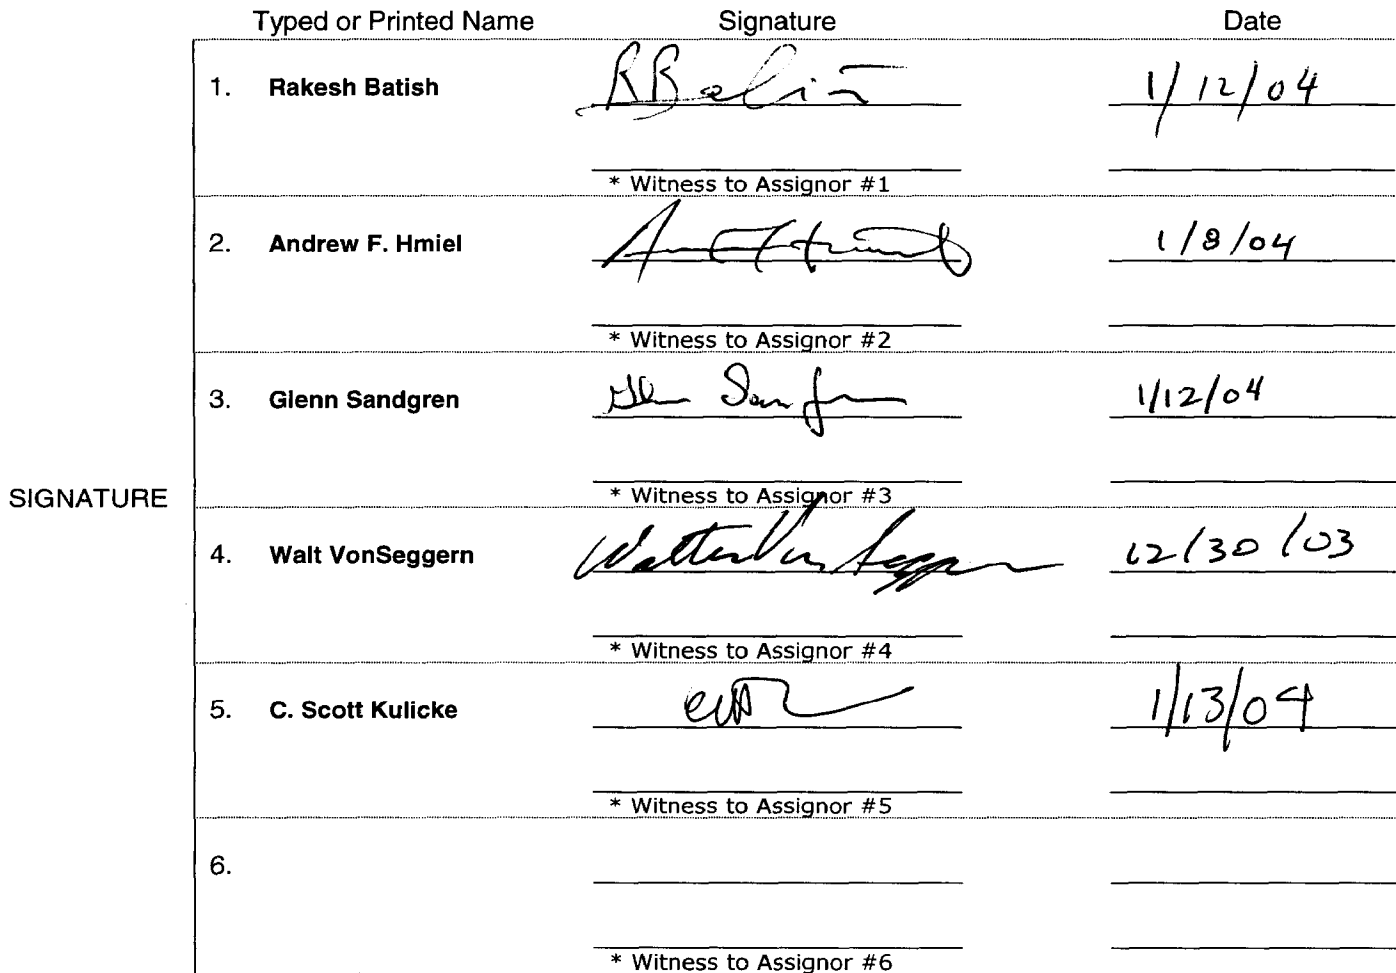 Typed or Printed Name Signature Date
1. Rakesh Batish RBatish 1/12/04
* Witness to Assignor #1
2. Andrew F. Hmiel 1/8/04
* Witness to Assignor #2
3. Glenn Sandgren 1/12/04
* Witness to Assignor #3
SIGNATURE
4. Walt VonSeggern Walter Von Seggern 12/30/03
* Witness to Assignor #4
5. C. Scott Kulicke 1/13/04
* Witness to Assignor #5
6.
* Witness to Assignor #6